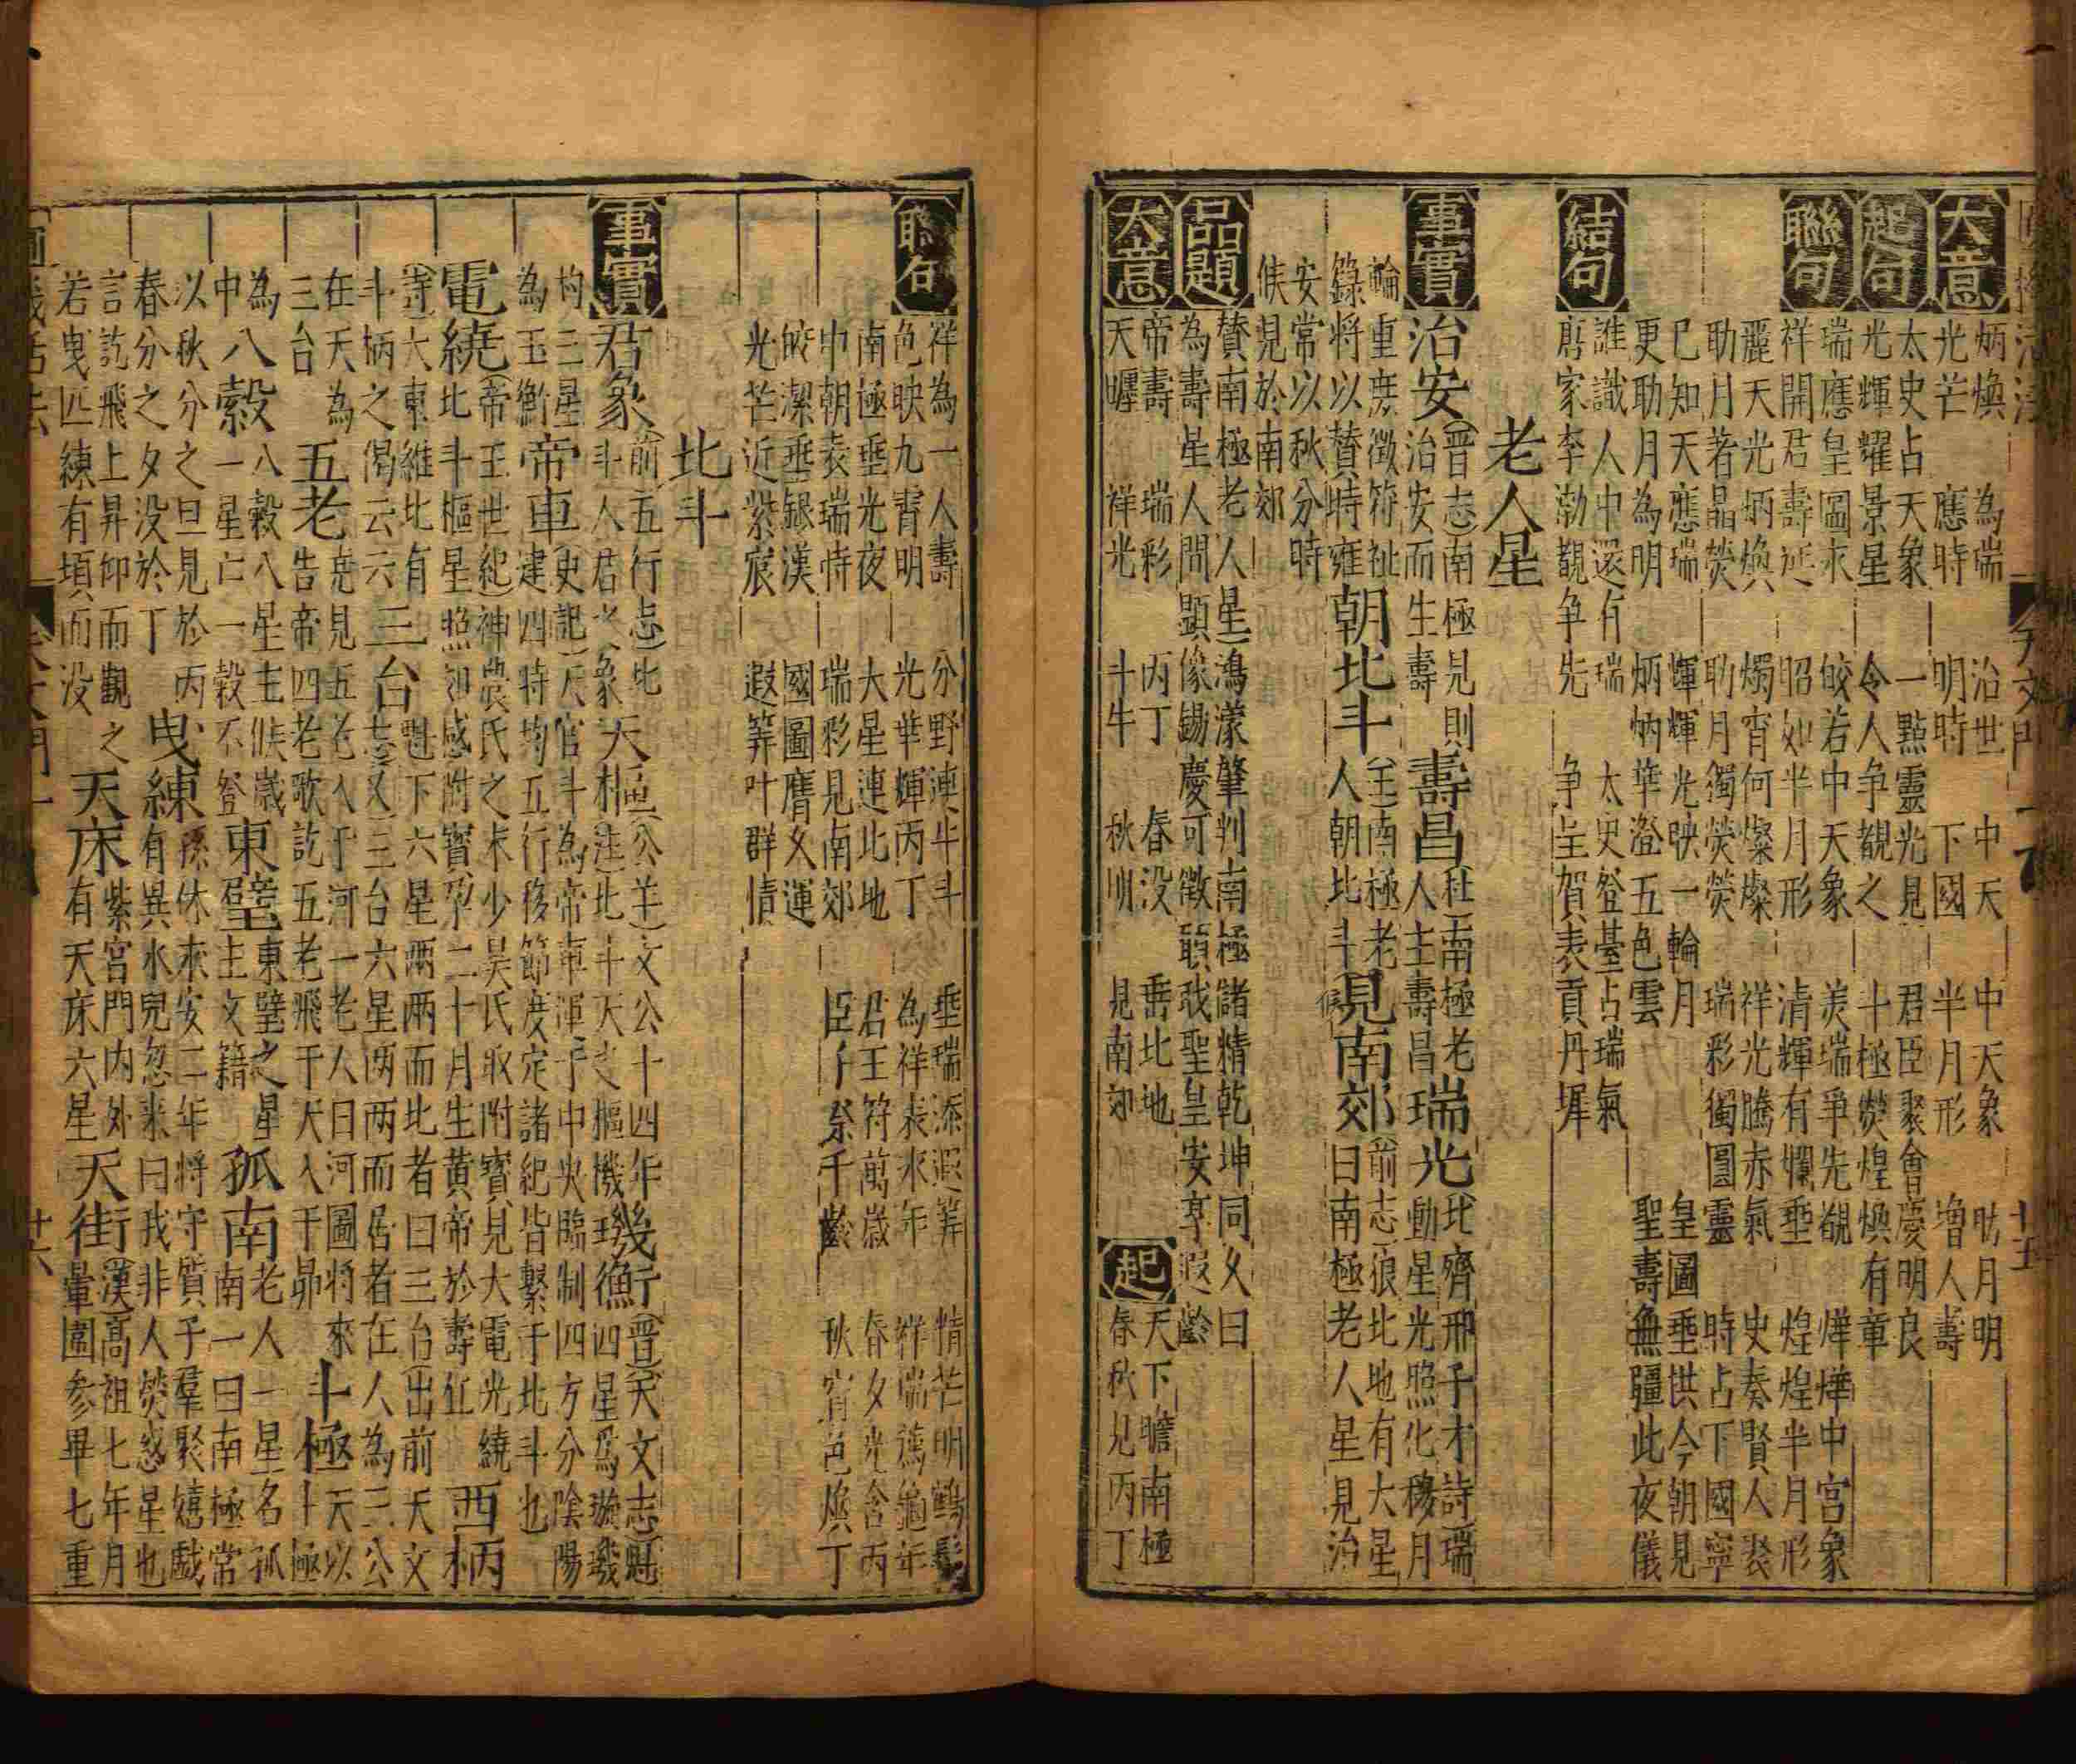 大意 炳煥 為瑞 治世 中天 中天象 助月明
光芒 應時 明時 下國 半月形 增人壽
起句 太史占天象 一點靈光見 君臣聚會慶明良
光輝耀景星 令人爭覩之 十極熒煌煥有章
聯句 瑞應皇圖永 皎若中天象 美瑞爭先覩 燁燁中宮象
祥開君壽延 昭如半月形 清輝有爛垂 煌煌半月形
麗天光炳煥 燭宵何燦燦 祥光騰赤氣 史奏賢人聚
助月著晶熒 助月獨熒熒 瑞彩獨圖靈 時占下國寧
已知天應瑞 輝輝光映一輪月 皇圖垂拱今朝見
更助月為明 炳炳華澄五色雲 聖壽無疆此夜儀
結句 誰識人中還有瑞 太史登臺占瑞氣
唐家李渤覩爭先 爭 賀表貢丹墀
老人星
事實 治安 晉志南極見則治安而生壽 壽昌 南極老人主壽昌 瑞光 北齊邢子才詩瑞動星光照化穆月
輪重度徵符祉籙將以贊時雍 朝北斗 南極老人朝北斗 見南郊 前志狼北地有大星曰南極老人星見治
安常以秋分時候見於南郊
品題 贊南極老人星 鴻濛肇判南極儲精乾坤同久曰
為壽星人間顯像錫慶可徵願我聖皇安享遐齡
大意 帝壽 瑞彩 丙丁 春没 垂北地 起 天下瞻南極
天曜 祥光 斗牛 秋明 見南郊 春秋見丙丁
聯句 祥為一人壽 分野連牛斗 垂瑞添遐筭 精芒明鶴髮
色映九霄明 光華輝丙丁 為祥表來年 祥瑞 龜年
南極垂光夜 大星連北地 君王符萬歲 春夕光含丙
中朝表瑞時 瑞彩見南郊 臣子祭千齡 秋宵色煥丁
皎潔垂銀漢 國圖膺久運
光芒近紫宸 遐筭叶群情
北斗
事實 君象 前五行志北斗人君之象 天樞 公羊文公十四年注北斗天之樞機 璣衡 晉天文志魁四星為璇璣
杓三星為玉衡 帝車 史記天官斗為帝車渾于中央臨制四方分陰陽建四時均五行移節度定諸紀皆繫于北斗也
電繞 帝王世紀神農氏之末少昊氏取附寶見大電光繞北斗樞星照郊感附寶孕二十月生黃帝於壽丘 西柄
詩大東維北有斗柄之偈云云 三台 魁下六星兩兩而比者曰三台出前天文志又三台六星兩兩而居者在人為三公
在天為三台 五老 堯見五老人于河一老人曰河圖將來告帝四老歌訖五老飛于天入于昴 斗極 天以斗極
為中 八穀 八穀八星主候歲一星亡一穀不登 東壁 東壁之星主文籍 孤南 老人一星名孤南一曰南極常
以秋分之旦見於丙春分之夕没於丁 曳練 孫休永安二年將守質子羣聚嬉戲有異小兒忽來曰我非人熒惑星也
言訖飛上昇仰而觀之若曳匹練有頃而没 天床 紫宮門内外有天床六星 天街 漢高祖七年月暈圍參畢七重